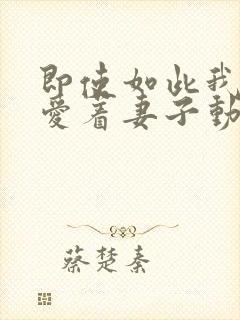 即使如此我
愛着妻子動
蔡楚秦